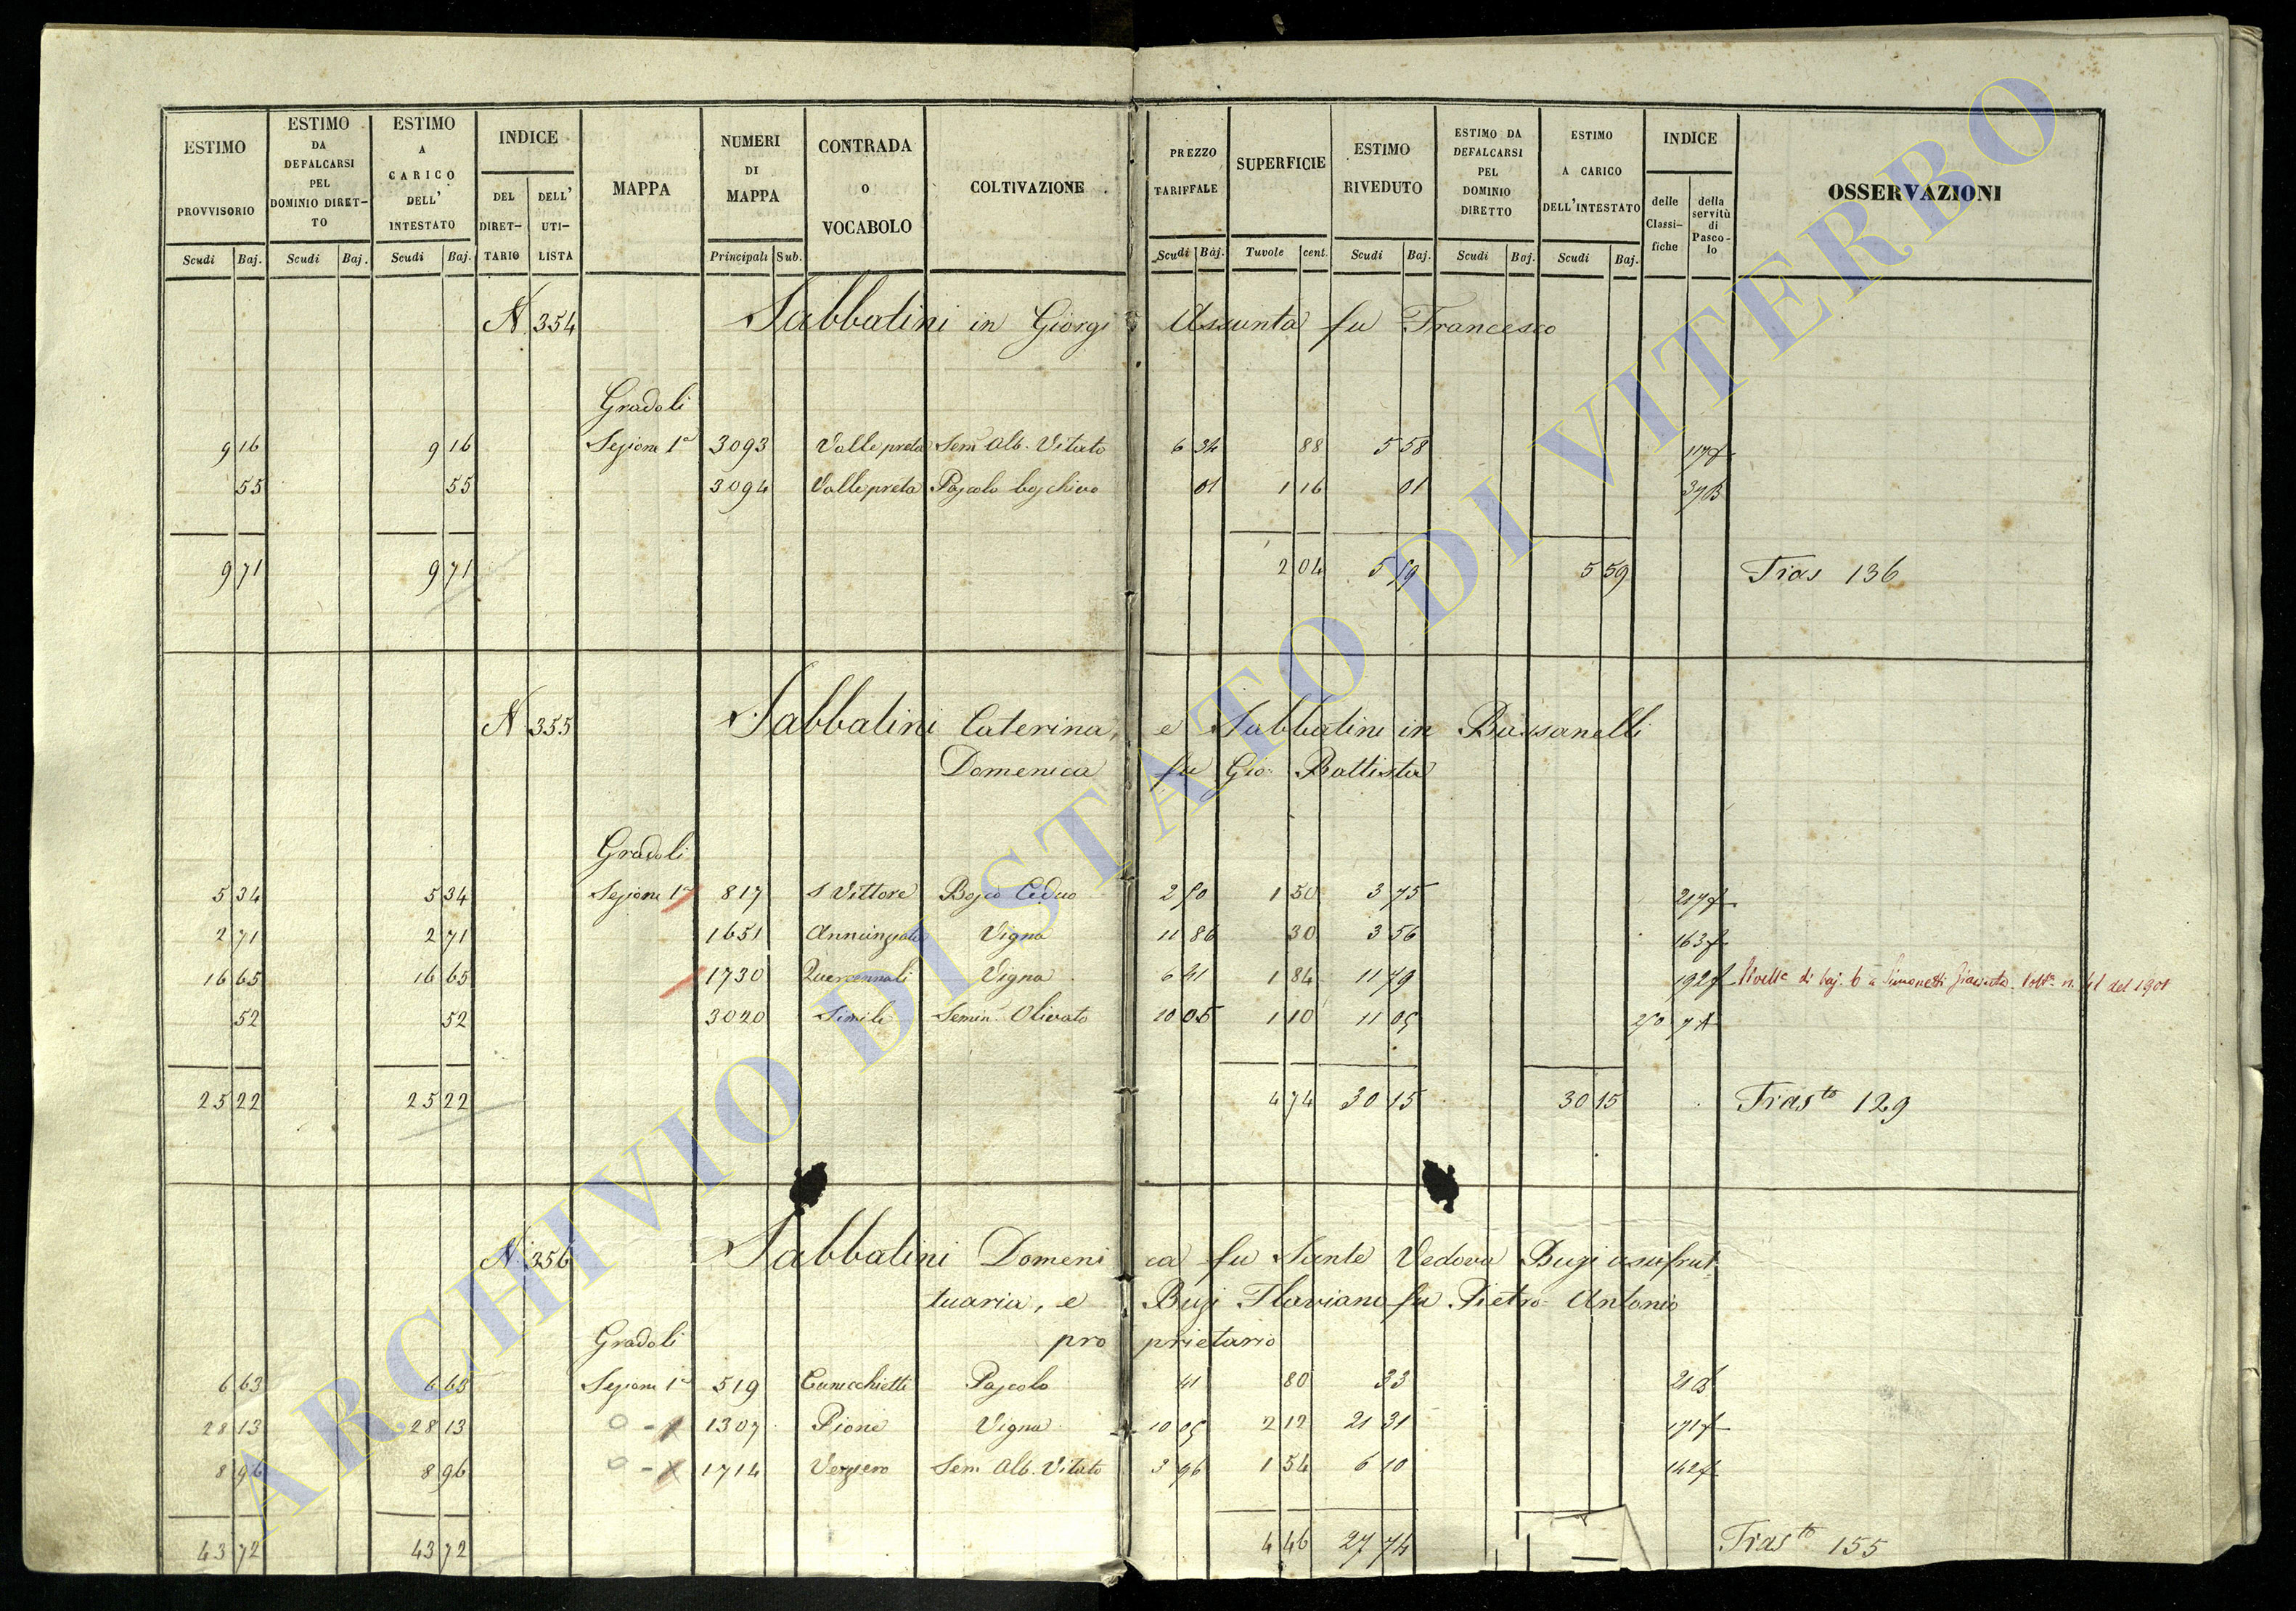 ESTIMO PROVVISORIO Scudi Baj.
ESTIMO DA DEFALCARSI PEL DOMINIO DIRET-TO Scudi Baj.
ESTIMO A CARICO DELL' INTESTATO Scudi Baj.
INDICE DEL DIRET-TARIO DELL' UTI-LISTA
MAPPA
NUMERI DI MAPPA Principali Sub.
CONTRADA O VOCABOLO
COLTIVAZIONE
PREZZO TARIFFALE Scudi Baj.
SUPERFICIE Tavole cent.
ESTIMO RIVEDUTO Scudi Baj.
ESTIMO DA DEFALCARSI PEL DOMINIO DIRETTO Scudi Baj.
ESTIMO A CARICO DELL'INTESTATO Scudi Baj.
INDICE delle Classi-fiche della servitù di Pasco-lo
OSSERVAZIONI
N 354 Sabbatini in Giorgi Assunta fu Francesco
Gradoli
9 16 9 16 Sezione 1a 3093 Valle preta Sem Alb. Vitato 6 34 88 5 58 117
55 55 3094 Valle preta Pascolo boschivo 01 1 16 01 37B
9 71 9 71 2 04 5 59 5 59 Tras 136
N 355 Sabbatini Caterina, e Sabbatini in Bassanelli
Domenica fu Gio: Battista
Gradoli
5 34 5 34 Sezione 1a 817 S Vittore Bosco Ceduo 2 50 1 50 3 75 217
2 71 2 71 1651 Annunziata Vigna 11 86 30 3 56 163
16 65 16 65 1730 Quercennali Vigna 6 41 1 84 11 79 192 livello di baj. 6 a Simonetti Giacinta. Volta n. 41 del 1901
52 52 3020 Simile Semin. Olivato 10 05 1 10 11 05 250 7A
25 22 25 22 4 74 30 15 30 15 Trasto 129
N 356 Sabbatini Domeni ca fu Sante Vedova Bugi usufrut
tuaria, e Bugi Flaviano fu Pietro Antonio
Gradoli pro prietario
6 63 6 63 Sezione 1a 519 Cunicchietti Pascolo 41 80 33 21B
28 13 28 13 1307 Pione Vigna 10 05 2 12 21 31 171
8 96 8 96 1714 Verziero Sem Alb. Vitato 3 96 1 54 6 10 142
43 72 43 72 4 46 27 74 Trasto 155
ARCHIVIO DI STATO DI VITERBO